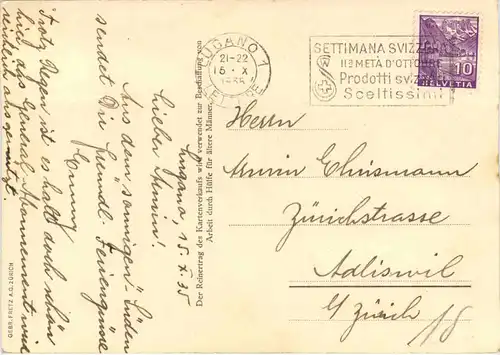 LUGANO 1
21-22
15. X
1935
LETTERE
SETTIMANA SVIZZERA
IIª METÀ D'OTTOBRE
Prodotti svizzeri
Sceltissimi
10
HELVETIA
Herrn
Armin Ehrismann
Zürichstrasse
Adliswil
b/ Zürich
Lugano, 15. X. 35
Lieber Armin!
Aus dem "sonnigen" Süden
sendet Dir freundl. Feriengrüsse
Trotz Regen ist es halt doch schön
hier, das General-Abonnement wird
reichlich ausgenützt.
Der Reinertrag des Kartenverkaufs wird verwendet zur Beschaffung von
Arbeit durch Hülfe für ältere Männer
GEBR. FRETZ A.G. ZÜRICH